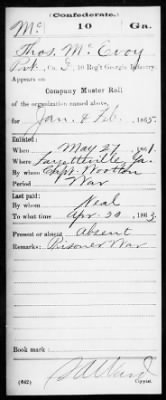 Confederate.
Mc 10 Ga.
Thos. McEvoy
Pvt., Co. I, 10 Reg't Georgia Infantry.
Appears on
Company Muster Roll
of the organization named above,
for Jan & Feb, 1865.
Enlisted:
When May 27, 1861.
Where Fayetteville, Ga.
By whom Capt. Wootton
Period War
Last paid:
By whom Neal
To what time Apr. 30, 1863.
Present or absent Absent
Remarks: Prisoner War
Book mark:
(642) Copyist.